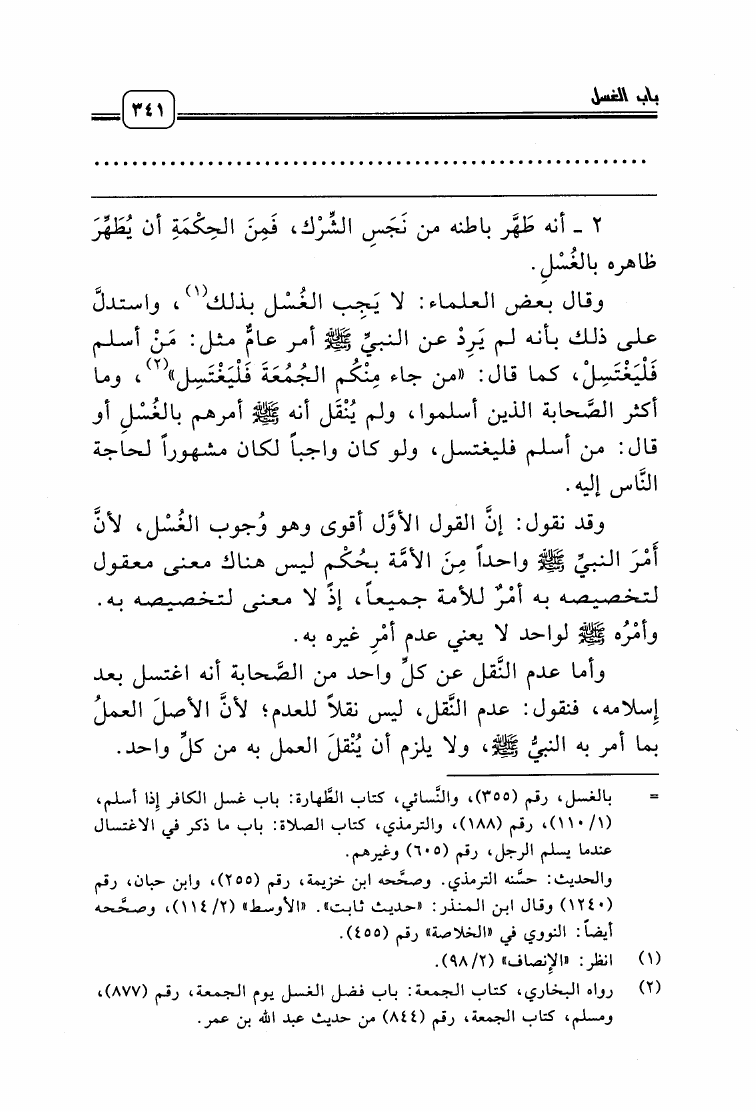 باب الغسل
٣٤١
............................................................
٢ ـ أنه طَهَّر باطنه من نَجَسِ الشِّرْك، فَمِنَ الحِكْمَةِ أن يُطَهِّرَ
ظاهره بالغُسْلِ.
وقال بعض العلماء: لا يَجِب الغُسْل بذلك(١)، واستدلَّ
على ذلك بأنه لم يَرِدْ عن النبيِّ ﷺ أمر عامٌّ مثل: مَنْ أسلم
فَلْيَغْتَسِلْ، كما قال: «من جاء مِنْكُم الجُمُعَةَ فَلْيَغْتَسِل»(٢)، وما
أكثر الصَّحابة الذين أسلموا، ولم يُنْقَل أنه ﷺ أمرهم بالغُسْلِ أو
قال: من أسلم فليغتسل، ولو كان واجباً لكان مشهوراً لحاجة
النَّاس إليه.
وقد نقول: إنَّ القول الأوَّل أقوى وهو وُجوب الغُسْل، لأنَّ
أَمْرَ النبيِّ ﷺ واحداً مِنَ الأمَّة بحُكْم ليس هناك معنى معقول
لتخصيصه به أمْرٌ للأمة جميعاً، إذْ لا معنى لتخصيصه به.
وأمْرُه ﷺ لواحد لا يعني عدم أمْرِ غيره به.
وأما عدم النَّقل عن كلِّ واحد من الصَّحابة أنه اغتسل بعد
إسلامه، فنقول: عدم النَّقل، ليس نقلاً للعدم؛ لأنَّ الأصلَ العملُ
بما أمر به النبيُّ ﷺ، ولا يلزم أن يُنْقلَ العمل به من كلِّ واحد.
= بالغسل، رقم (٣٥٥)، والنَّسائي، كتاب الطَّهارة: باب غسل الكافر إذا أسلم،
(١/١١٠)، رقم (١٨٨)، والترمذي، كتاب الصلاة: باب ما ذكر في الاغتسال
عندما يسلم الرجل، رقم (٦٠٥) وغيرهم.
والحديث: حسَّنه الترمذي. وصحَّحه ابن خزيمة، رقم (٢٥٥)، وابن حبان، رقم
(١٢٤٠) وقال ابن المنذر: «حديث ثابت». «الأوسط» (٢/١١٤)، وصحَّحه
أيضاً: النووي في «الخلاصة» رقم (٤٥٥).
(١) انظر: «الإنصاف» (٢/٩٨).
(٢) رواه البخاري، كتاب الجمعة: باب فضل الغسل يوم الجمعة، رقم (٨٧٧)،
ومسلم، كتاب الجمعة، رقم (٨٤٤) من حديث عبد الله بن عمر.